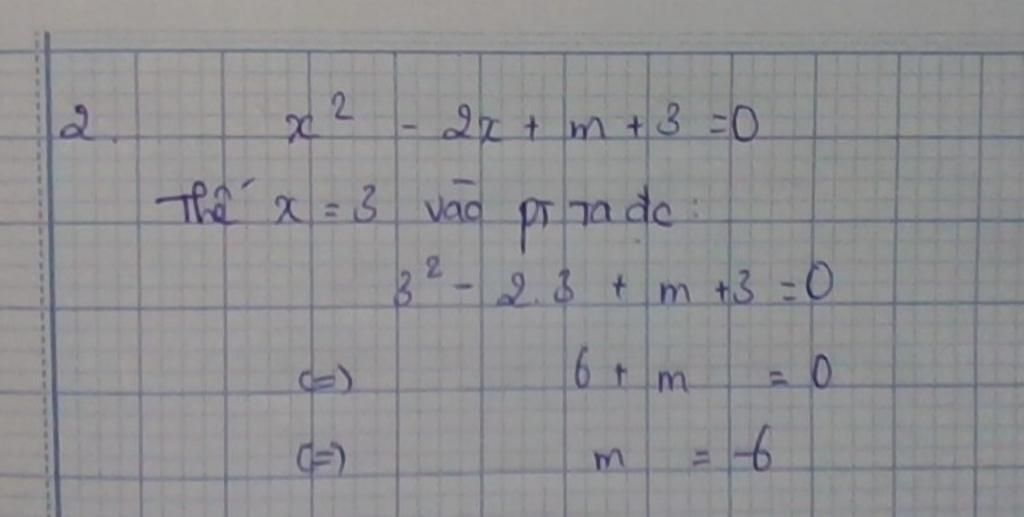 2. x² - 2x + m + 3 = 0
Thế x = 3 vào pt ta đc:
3² - 2.3 + m + 3 = 0
(=) 6 + m = 0
(=) m = -6